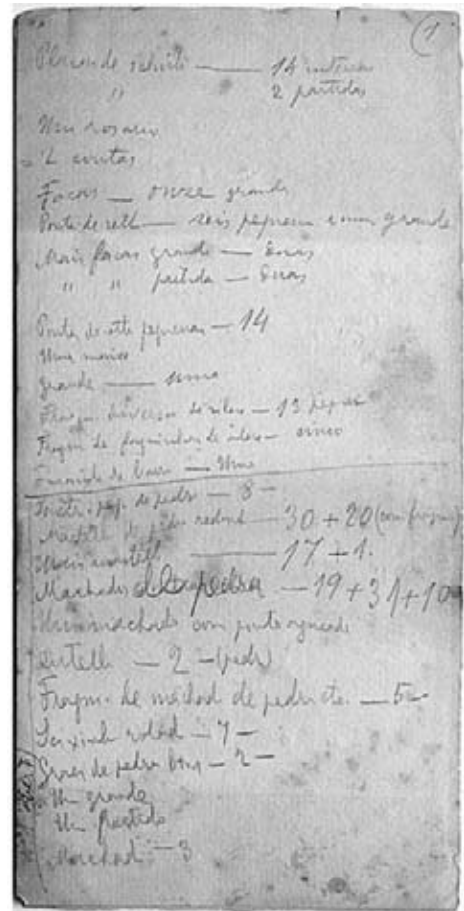 (1)
Placas de schisto — 14 inteiras
" 2 partidas
Um rosario
2 contas
Facas — onze grandes
Ponta de setta — seis pequenas e uma grande
Mais facas grande — duas
" " partida — duas
Pontas de setta pequenas — 14
Uma maior
Grande — uma
Fragm. diversos de silex — 13
Fragm de faquinhas de silex — cinco
de barro — Uma
de pedra — 8 —
de pedra redond — 30 + 20 (com fragm)
Mais — 17 + 1.
Machados de pedra — 19 + 31 + 10
Um machado com ponta aguçada
Cutello — 2 — (pedr)
Fragm. de machad de pedra etc. — 5 —
Seixinho rolad — 7 —
de pedra — 2 —
Um grande
Um partido
Machad. — 3